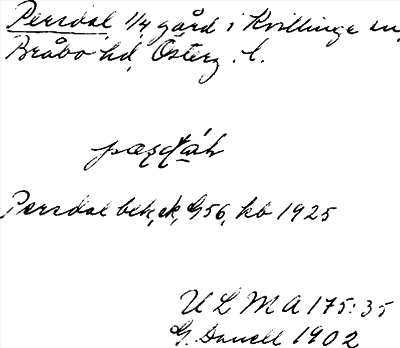 Persdal 1/4 gård i Kvillinge sn,
Bråbo hd, Österg. l.
Persdal bek, ek, G56, kb 1925
ULMA 175:35
G. Danell 1902